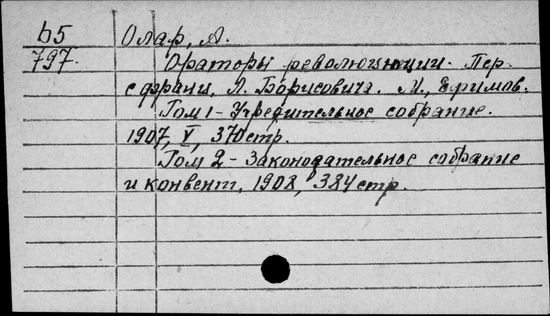 Б5 Олар, А.
797. Ораторы революции. Пер.
с франц. Л. Борисовича. М., Ефимов.
Том 1 - Учредительное собрание.
1907, V, 370 стр.
Том 2 - Законодательное собрание
и конвент. 1908, 384 стр.